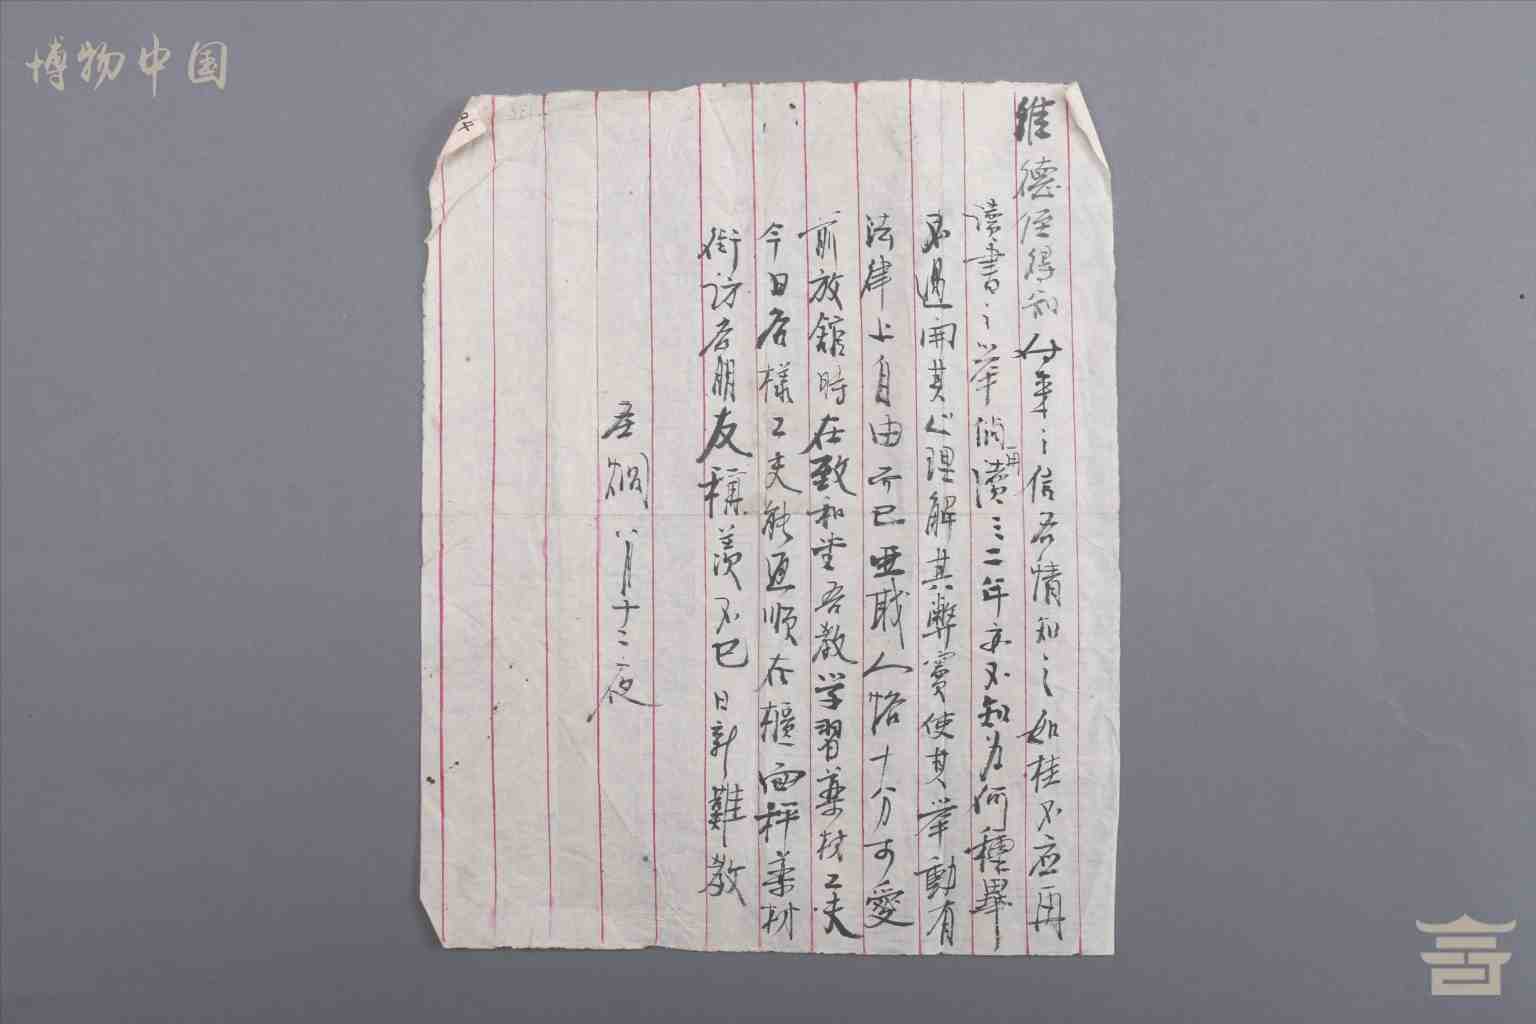 博物中国
94
維德侄得知付來之信吾情知之如桂不应再
讀書之举倘再讀三二年亦不知为何種畢
不過開其心理解其弊竇使其举動有
法律上自由而已亚戝人恪十分可愛
前放舘時在致和堂吾教学習兼技工夫
今日居樣工夫能通順在櫃面秤薬材
街访吾朋友稱羡不已日新難教
吾炯八月十二夜